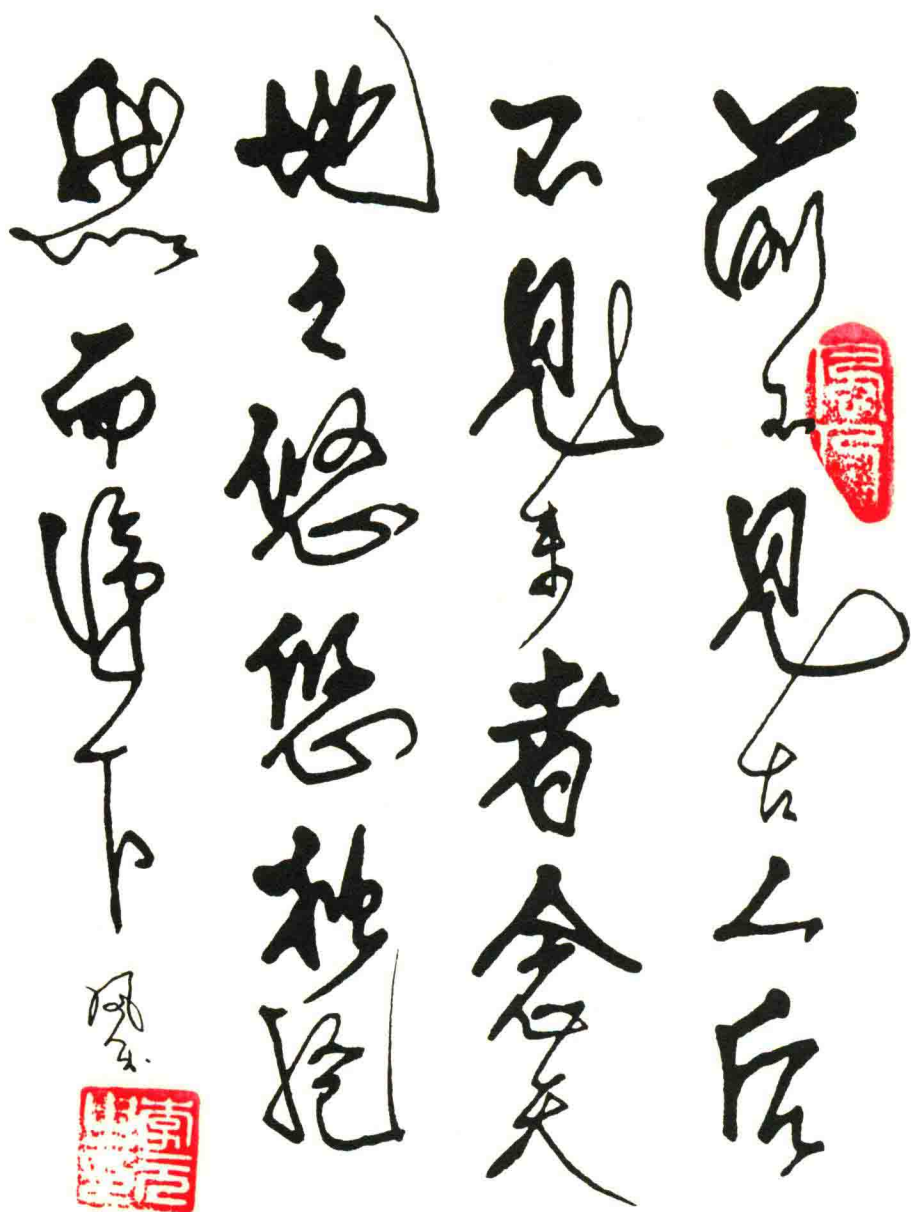 前不見古人后
不見来者念天
地之悠悠独怆
然而涕下